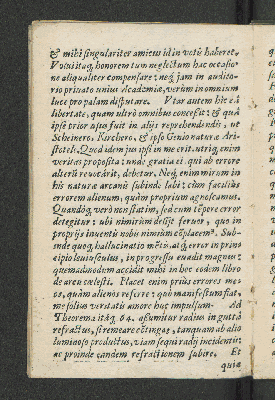 & mihi singulariter amicus id in votis haberet.
Volui itaq; honorem tum neglectum hac occasio-
ne aliqualiter compensare: neq; jam in audito-
rio privato unius Academiæ, verùm in omnium
luce pro palam disputare. Utar autem hic eâ
libertate, quam ultrò omnibus concessit: & quâ
ipse prior usus fuit in alijs reprehendendis, ut
Scheinero, Kirchero, & ipso Genio naturæ Ari-
stotele. Quod idem jus ipsi in me erit. utriq; enim
veritas proposita: unde gratia ei, qui ab errore
alterū revocârit, debetur. Neq; enim mirum in
his naturæ arcanis subinde labi: cùm facilius
errorem alienum, quàm proprium agnoscamus.
Quandoq; verò nec statim, sed cum tempore error
detegitur: ubi nimirum desijt fervor, quo in
proprijs inventis nobis nimiùm
quemadmodum accidit mihi in hoc eodem libro
de arcu cælesti. Placet enim priùs errores me-
os, quàm alienos referre: quò manifestum fiat,
me solius veritatis amore huc impulsum. Ad
Theorema itáq; 64. assumitur radius in guttâ
refractus, si remeare contingat, tanquam ab alio
luminoso productus, viam sequi radij incidentis:
ac proinde eandem refractionem subire. Et
quia